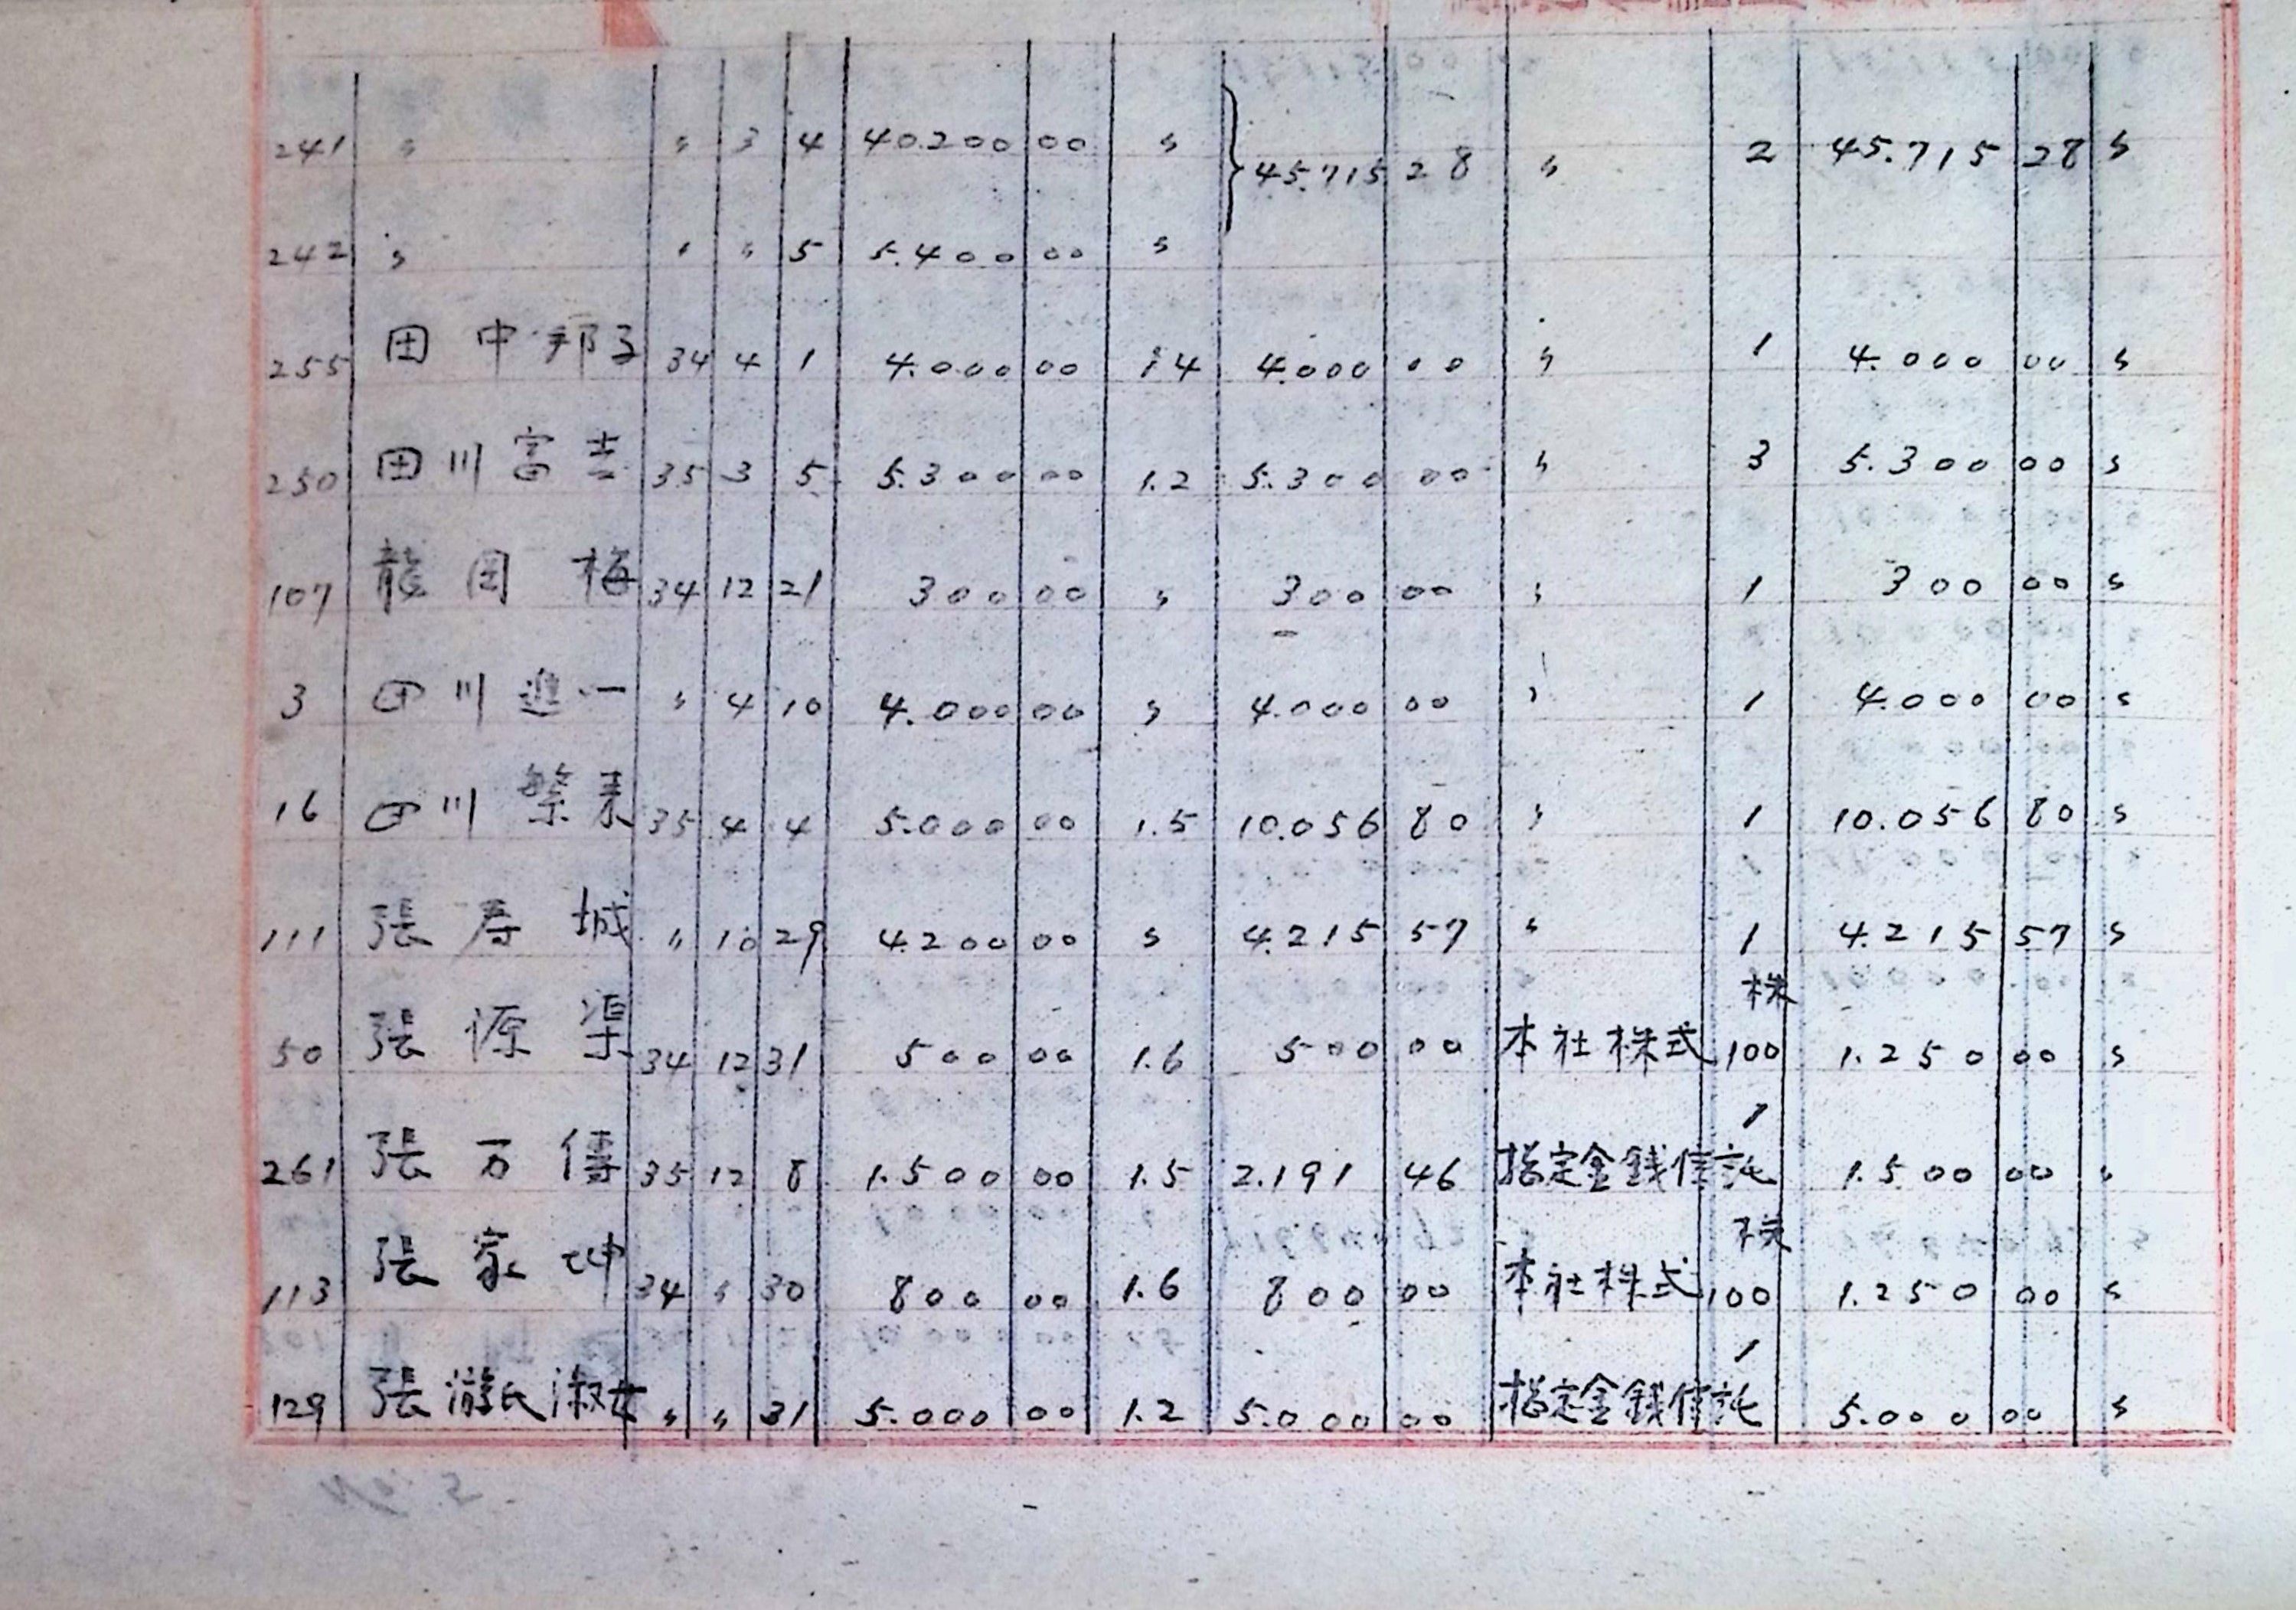 241 〃 〃 3 4 40.200 00 〃 45.715 28 〃 2 45.715 28 〃
242 〃 〃 〃 5 5.400 00 〃
255 田中邦子 34 4 1 4.000 00 1.4 4.000 00 〃 1 4.000 00 〃
250 田川富吉 35 3 5 5.300 00 1.2 5.300 00 〃 3 5.300 00 〃
107 龍岡梅 34 12 21 300 00 〃 300 00 〃 1 300 00 〃
3 田川進一 〃 4 10 4.000 00 〃 4.000 00 〃 1 4.000 00 〃
16 田川繁 35 4 4 5.000 00 1.5 10.056 80 〃 1 10.056 80 〃
111 張寿城 〃 10 29 4.200 00 〃 4.215 57 〃 1 4.215 57 〃
50 張源渠 34 12 31 500 00 1.6 500 00 本社株式 株100 1.250 00 〃
261 張万傳 35 12 8 1.500 00 1.5 2.191 46 指定金銭信託 1 1.500 00 〃
113 張家坤 34 〃 30 800 00 1.6 800 00 本社株式 株100 1.250 00 〃
129 張游氏淑女 〃 〃 31 5.000 00 1.2 5.000 00 指定金銭信託 1 5.000 00 〃